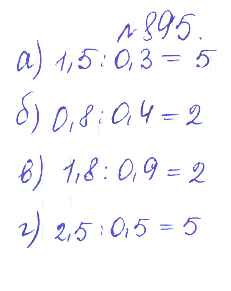 № 895.
а) 1,5 : 0,3 = 5
б) 0,8 : 0,4 = 2
в) 1,8 : 0,9 = 2
г) 2,5 : 0,5 = 5